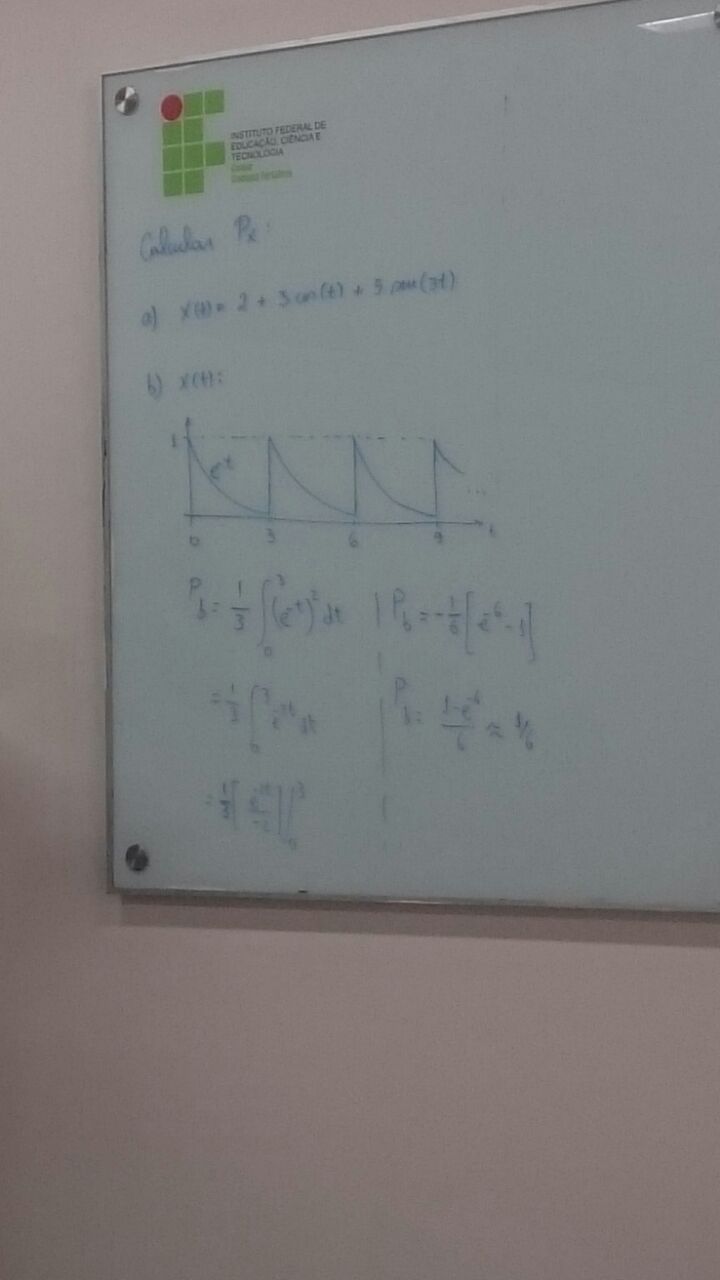 INSTITUTO FEDERAL DE
EDUCAÇÃO, CIÊNCIA E
TECNOLOGIA
Calcular Px:
a) x(t) = 2 + 3 cos(t) + 5 sen(3t)
b) x(t):
1
e^-t
...
0 3 6 9 t
Pb = 1/3 ∫_0^3 (e^-t)^2 dt
= 1/3 ∫_0^3 e^-2t dt
= 1/3 [e^-2t/-2] |_0^3
Pb = -1/6 [e^-6 - 1]
Pb = (1-e^-6)/6 ≈ 1/6